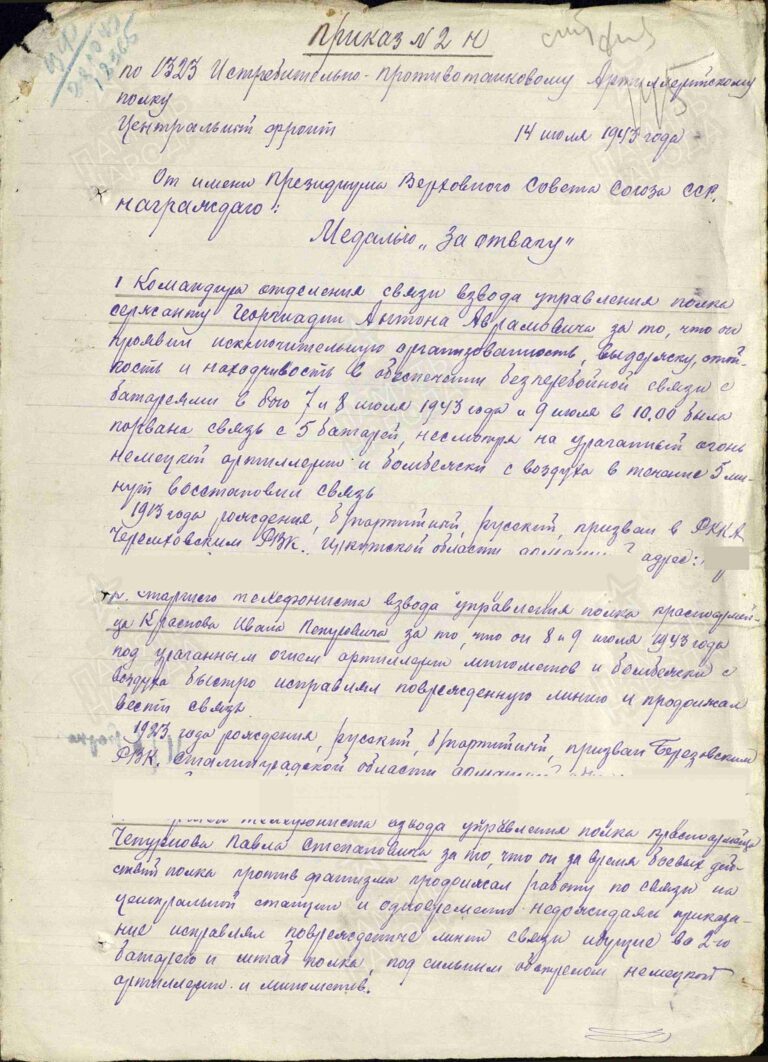 Приказ № 2 н
по 1323 Истребительно-противотанковому Артиллерийскому
полку
Центральный фронт 14 июля 1943 года
От имени Президиума Верховного Совета Союза ССР,
награждаю:
Медалью „За отвагу"
1 Командира отделения связи взвода управления полка
сержанту Георгиади Антона Аврамовича за то, что он
проявил исключительную организованность, выдержку,
кость и находчивость в обеспечении безперебойной связи с
батареями в бою 7 и 8 июля 1943 года и 9 июля в 10.00 была
порвана связь с 5 батарей, несмотря на ураганный огонь
немецкой артиллерии и бомбежки с воздуха в течение 5 ми-
нут восстановил связь
1913 года рождения, б/партийный, русский, призван в РККА
Черемховским РВК. Иркутской области адрес:
2. Старшего телефониста взвода управления полка красноармей-
ца Краснова Ивана Петровича за то, что он 8 и 9 июля 1943 года
под ураганным огнем артиллерии минометов и бомбежки с
воздуха быстро исправлял поврежденную линию и продолжал
вести связь
1923 года рождения, русский, б/партийный, призван Березовским
РВК. Сталинградской области
телефониста взвода управления полка красноармейца
Чепурнова Павла Степановича за то, что он за время боевых дей-
ствий полка против фашизма продолжал работу по связи на
центральной станции и одновременно недожидаяс приказа-
ние исправлял поврежденные линии связи идущие во 2-ю
батарею и штаб полка, под сильным обстрелом немецкой
артиллерии и минометов.